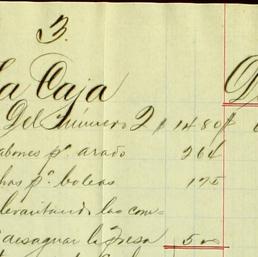 3.
La Caja
Del número 2 $ 1480
abones pª. arado 264
has pª. boleas 175
levantando las com-
desaguar la Presa 5